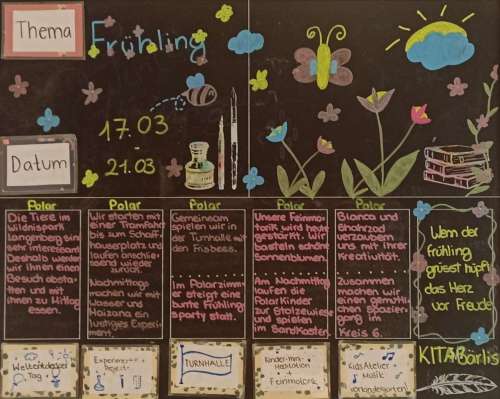 Thema
Frühling
17.03
-
21.03
Datum
Polar
Die Tiere im
Wildnispark
Langenberg sind
sehr interessant.
Deshalb werden
wir ihnen einen
Besuch abstat-
ten und mit
ihnen zu Mittag
essen.
Polar
Wir starten mit
einer Tramfahrt
bis zum Schaff-
hauserplatz und
laufen anschlie-
ssend wieder
zurück.
Nachmittags
machen wir mit
Wasser und
Maizena ein
lustiges Experi-
ment.
Polar
Gemeinsam
spielen wir in
der Turnhalle mit
den Frisbees.
Im Polarzimm-
er steigt eine
bunte Frühlings
party statt.
Polar
Unsere Feinmo-
torik wird heute
gestärkt. Wir
basteln schöne
Sonnenblumen.
Im Nachmittag
laufen die
Polarkinder
zur Stolzewiese
und spielen
im Sandkasten.
Polar
Bianca und
Shahrzad
verzaubern
uns mit ihrer
Kreativität.
Zusammen
machen wir
einen gemütli-
chen Spazier-
gang im
Kreis 6.
Wenn der
frühling
grüsst hüpft
das Herz
vor Freude
KITA Bärlis
Weltentdecker
Tag
TURNHALLE
Feinmotorik
Kids Atelier
Musik